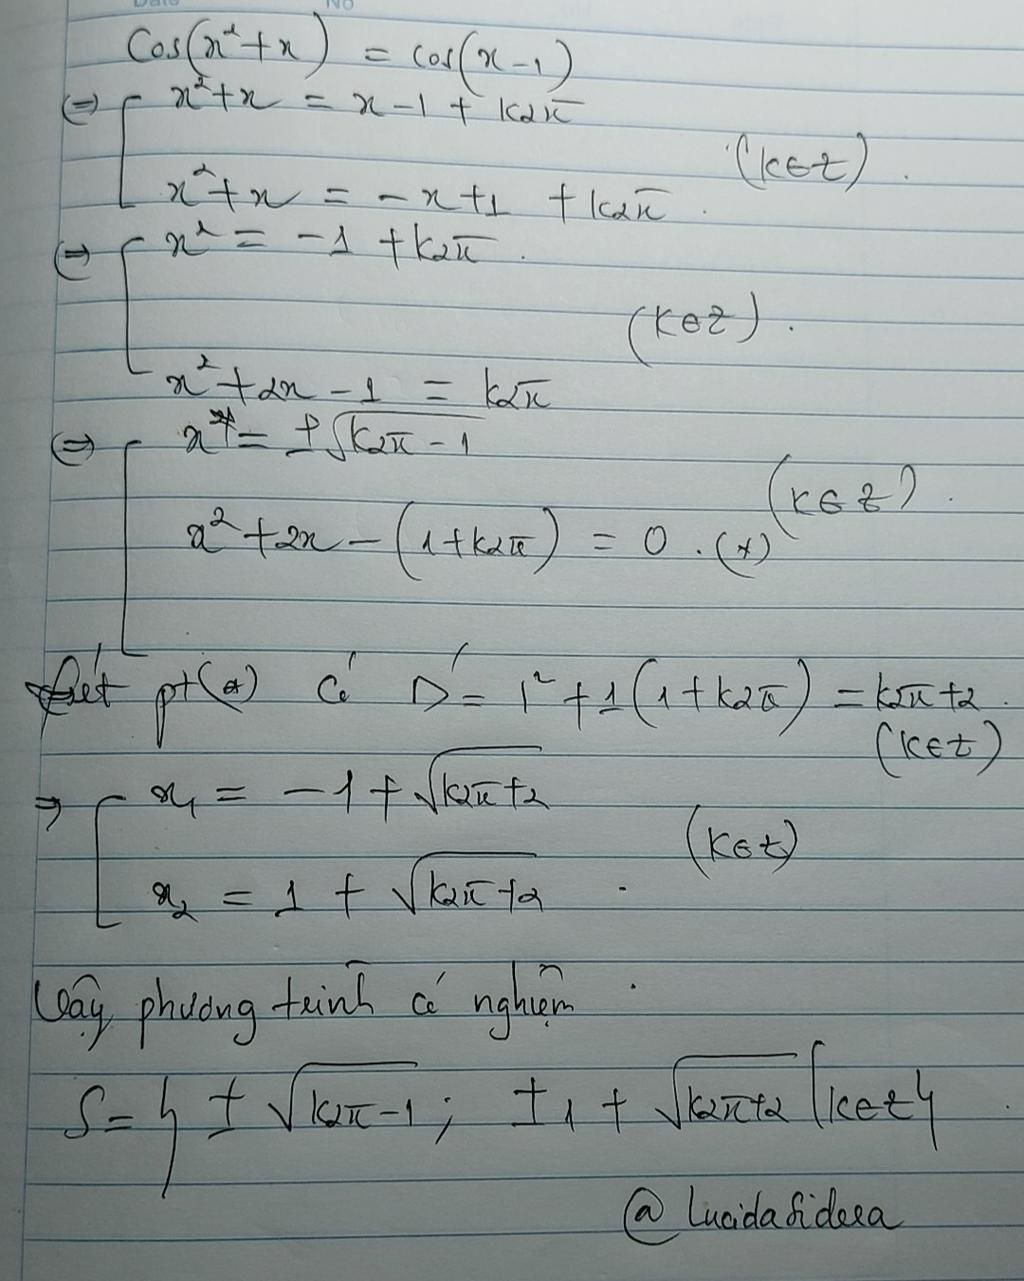 No
Cos(x²+x) = cos(x-1)
(=) [ x²+x = x-1 + k2π
(k∈Z).
x²+x = -x+1 + k2π.
(=) [ x² = -1 + k2π.
(k∈Z).
x²+2x-1 = k2π
(=) [ x = ±√(k2π-1)
(k∈Z).
x²+2x-(1+k2π) = 0. (*)
Xét pt(*) có Δ' = 1²+1(1+k2π) = k2π+2.
(k∈Z)
⇒ [ x₁ = -1 + √(k2π+2)
(k∈Z)
x₂ = 1 + √(k2π+2).
Vậy phương trình có nghiệm.
S = { ±√(k2π-1); ±1 + √(k2π+2) | k∈Z }.
@ Lucidasidera